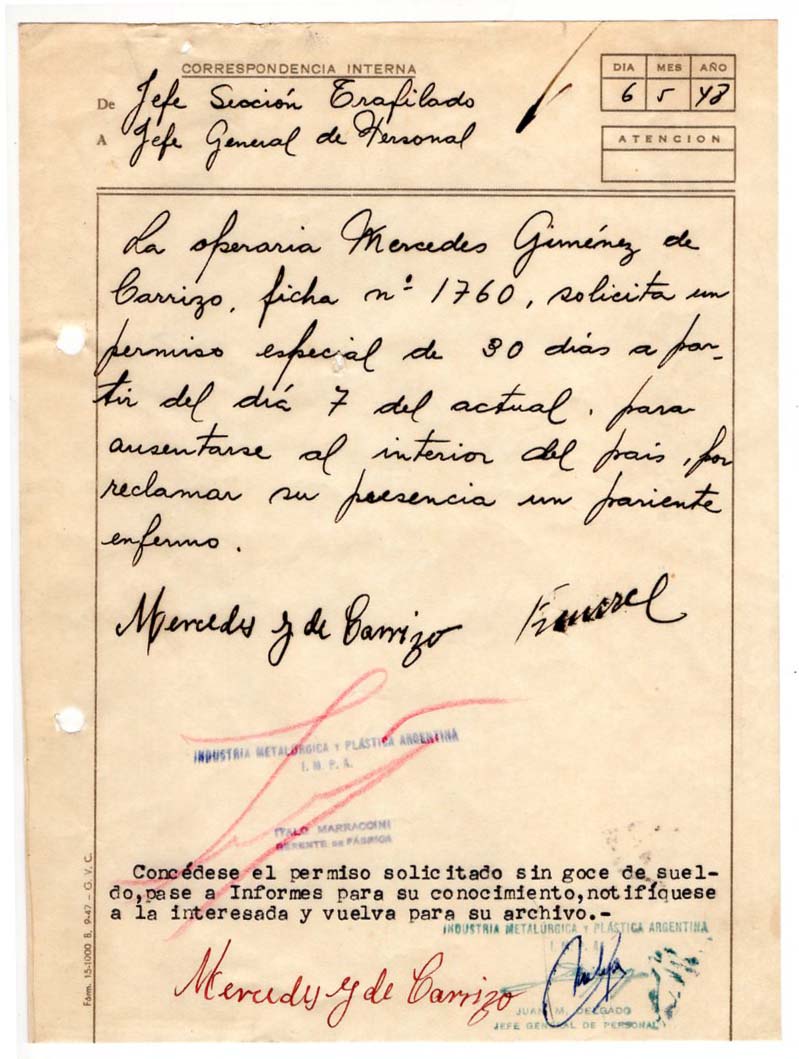 CORRESPONDENCIA INTERNA
DIA MES AÑO
De Jefe Sección Trafilado
6 5 48
A Jefe General de Personal
ATENCION
La operaria Mercedes Giménez de
Carrizo, ficha nº 1760, solicita un
permiso especial de 30 días a par-
tir del día 7 del actual, para
ausentarse al interior del país, por
reclamar su presencia un pariente
enfermo.
Mercedes G de Carrizo
INDUSTRIA METALÚRGICA Y PLÁSTICA ARGENTINA
I. M. P. A.
ITALO MARRACCINI
GERENTE DE FÁBRICA
Concédese el permiso solicitado sin goce de suel-
do,pase a Informes para su conocimiento,notifíquese
a la interesada y vuelva para su archivo.-
INDUSTRIA METALÚRGICA Y PLÁSTICA ARGENTINA
I. M. P. A.
Mercedes G de Carrizo
JUAN M. DELGADO
JEFE GENERAL DE PERSONAL
Fórm. 15-1000 B. 9-47 - G. V. C.